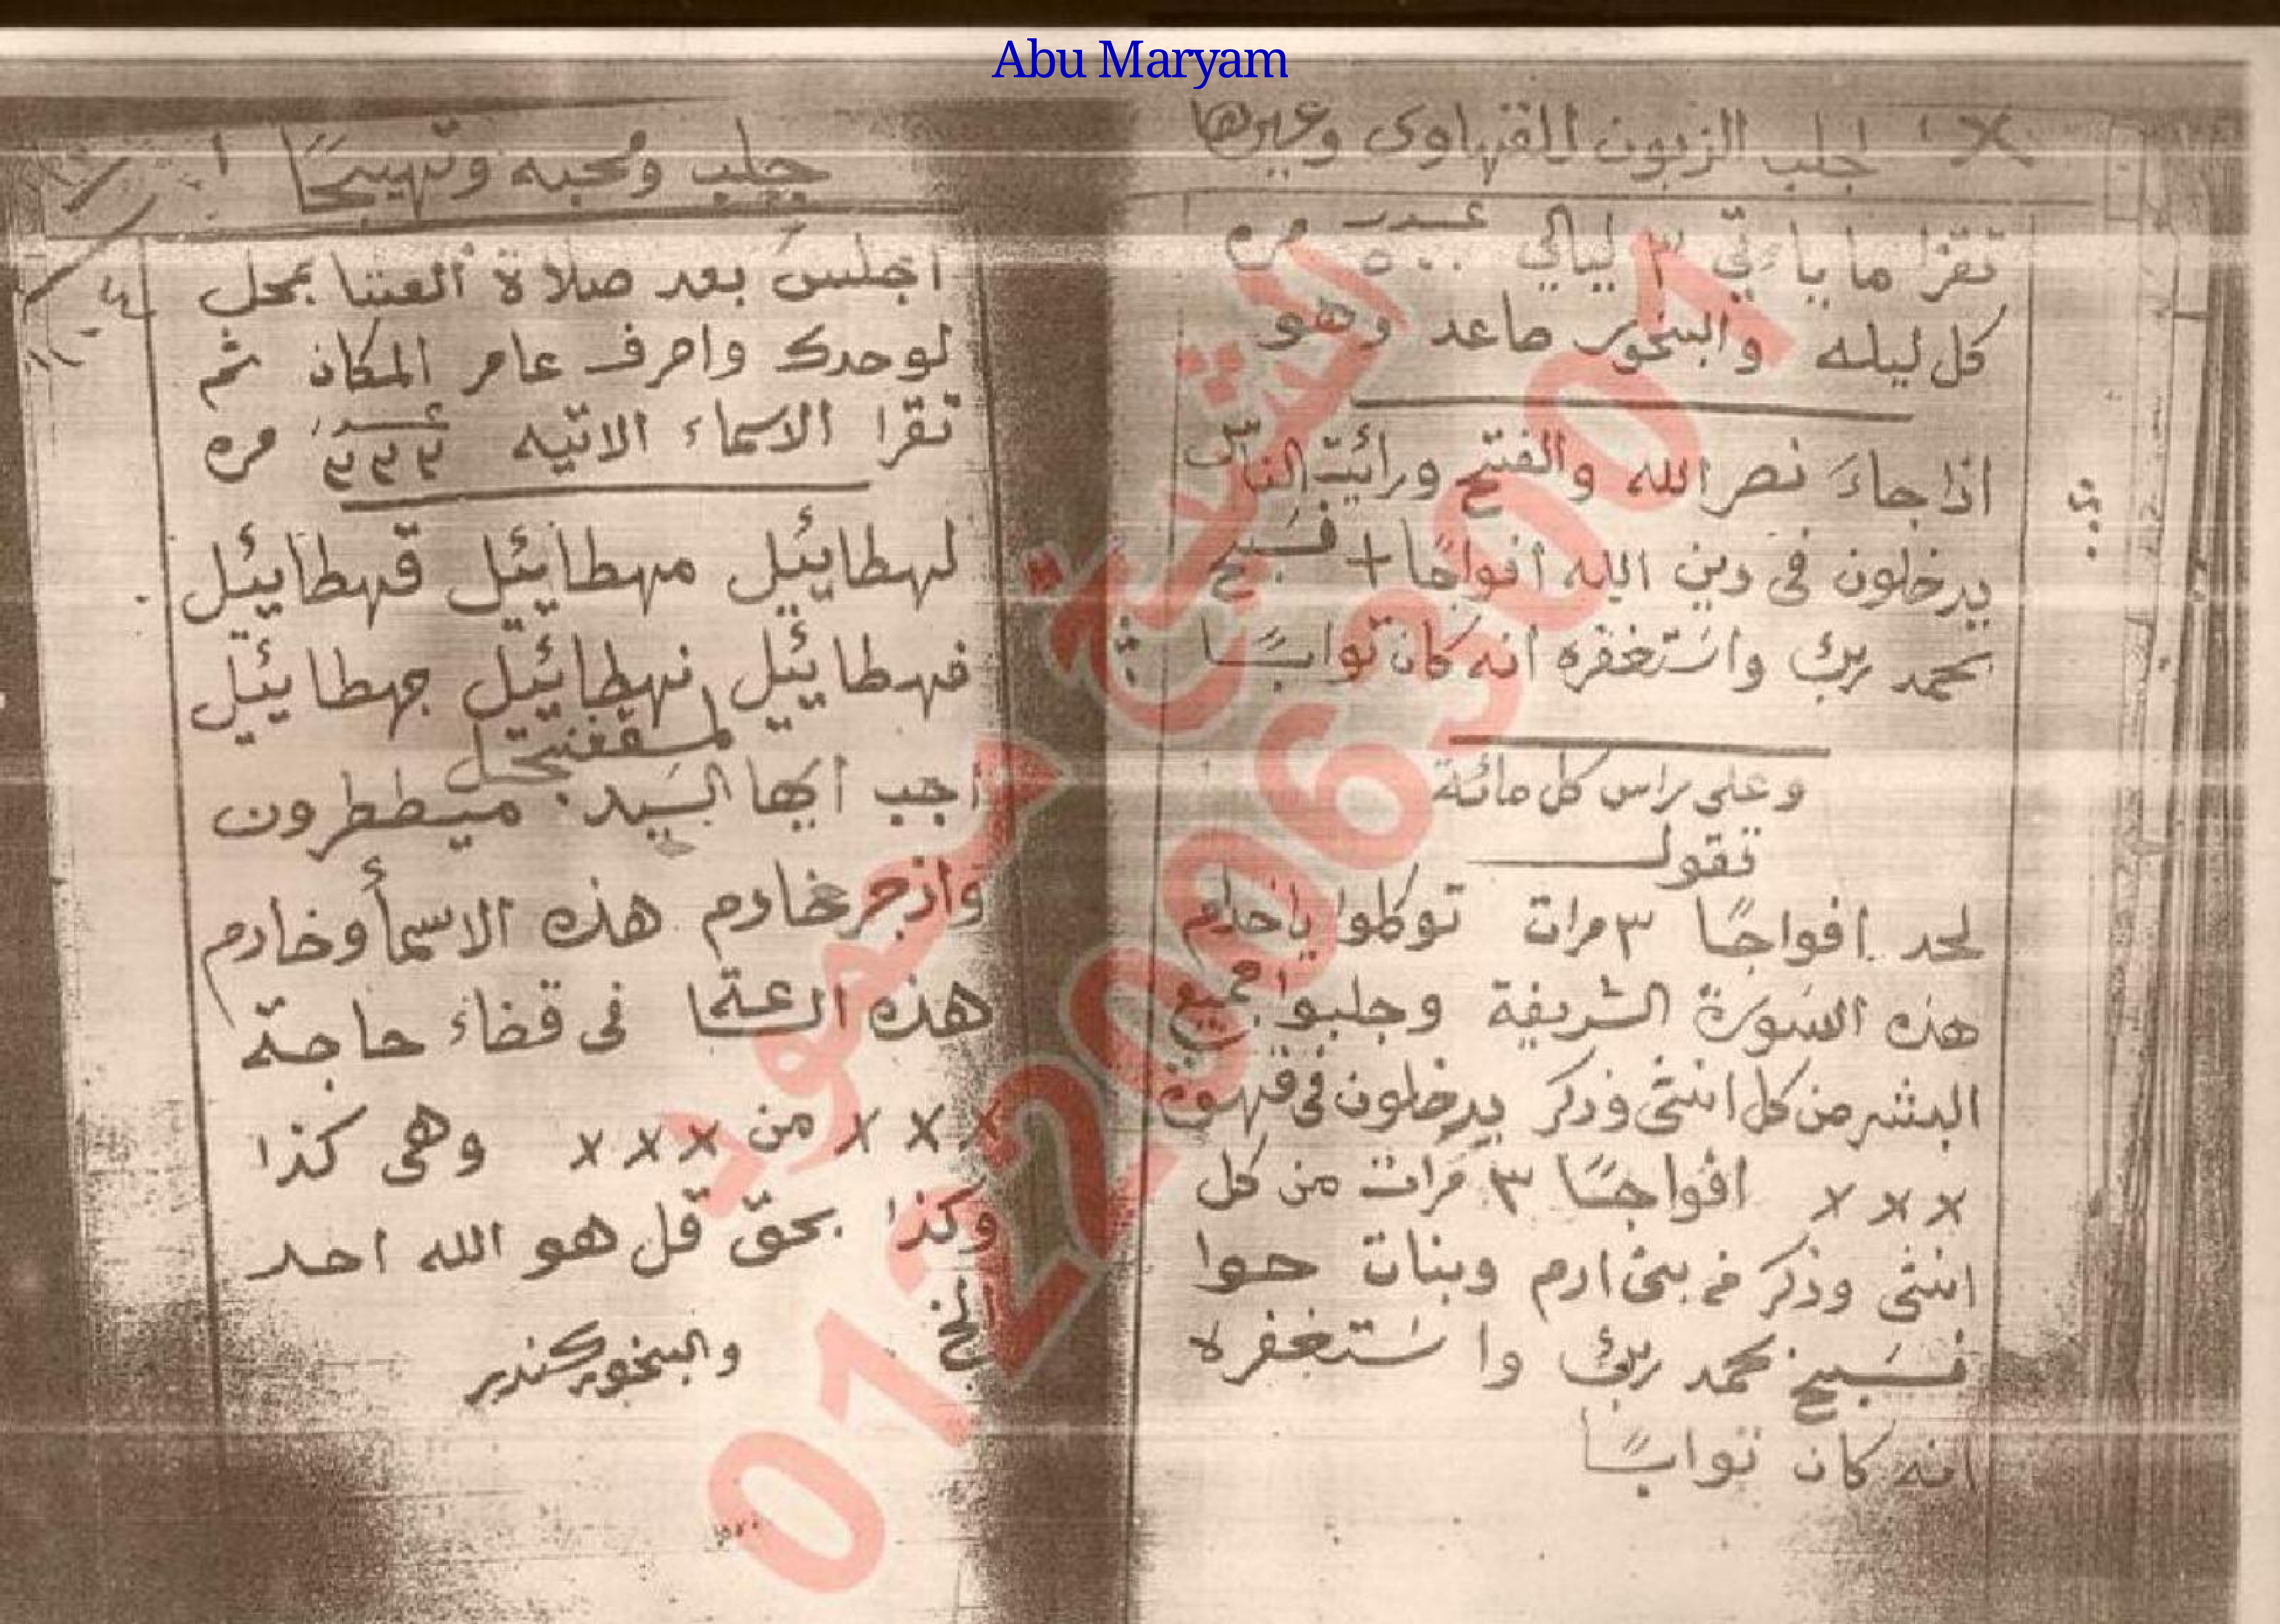 Abu Maryam
اجلب الزبون للقهاوى وغيرها
تقرا ما ياءتي ٣ ليالي عدد ٥٠٠ مره
كل ليله والبخور صاعد وهو
اذا جاءَ نصر الله والفتح ورائيت الناس
يدخلون فى دين الله افواجًا + فسَبح
بحمد ربك واستغفره انه كان توابًا
وعلى راس كل مائة
تقول
لحد افواجًا ٣ مرات توكلوا ياخدام
هذه السورة الشريفة وجلبوا جميع
البشر من كل انثى وذكر يدخلون فى قهوة
x x x افواجًا ٣ مَرات من كل
انثى وذكر من بنى ادم وبنات حوا
فسَبح بحمد ربك واستغفره
انه كان توابًا
جلب ومحبه وتهيجًا
اجلس بعد صلاة العشا بمحل
لوحدك واصرف عامر المكان ثم
تقرا الاسماء الاتيه عدد ٣٣٣ مره
لهطائيل مهطائيل قهطائيل
فهطائيل نهطائيل جهطائيل
اجب ايها السَيد ميططرون
وازجر خادم هذه الاسمأ وخادم
هذه الساعة فى قضاء حاجة
x x x من x x x وهى كذا
وكذا بحقّ قل هو الله احد
الخ
والبخور كندر
الشيخ سعود
01220063001